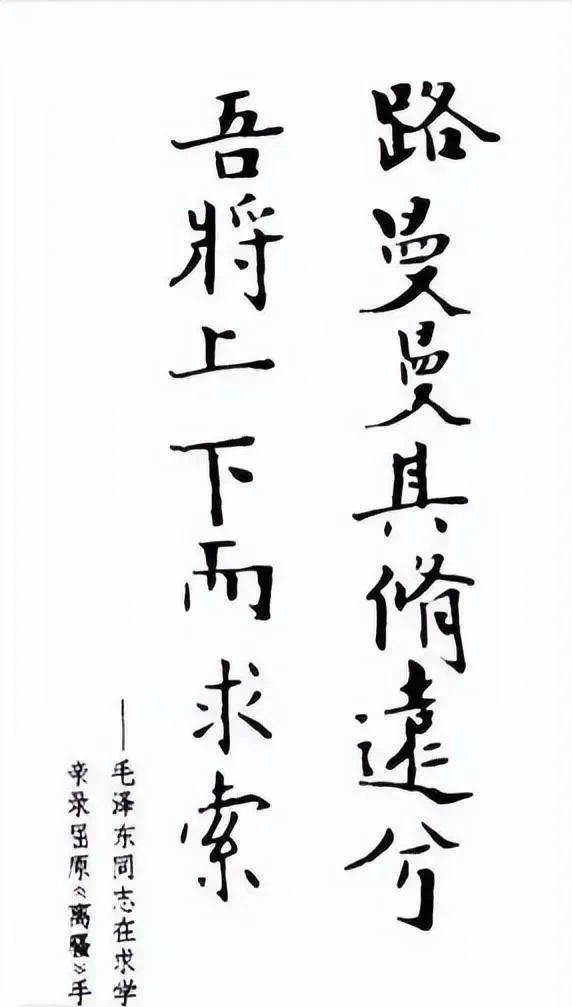 路曼曼其脩遠兮
吾將上下而求索
——毛泽东同志在求学
亲录屈原《离骚》手